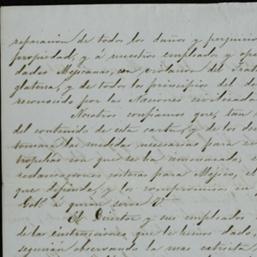 reparacion de todos los daños y perjuicios
propiedad, y á nuestros empleados y
dadas Mejicanas, con violacion del
y de todos los principios del de
reconocido por las Naciones civilizadas
Nosotros confiamos que, tan
del contenido de esta carta, y de los do
tomará las medidas necesarias para
tropelías con que se ha amenazado,
reclamaciones seria para Mejico, el
que defiende, y los compromisos
Gob.º á quien sirve V.
El Director y sus empleados
de las instrucciones que le hemos dado,
seguirán observando la mas estricta